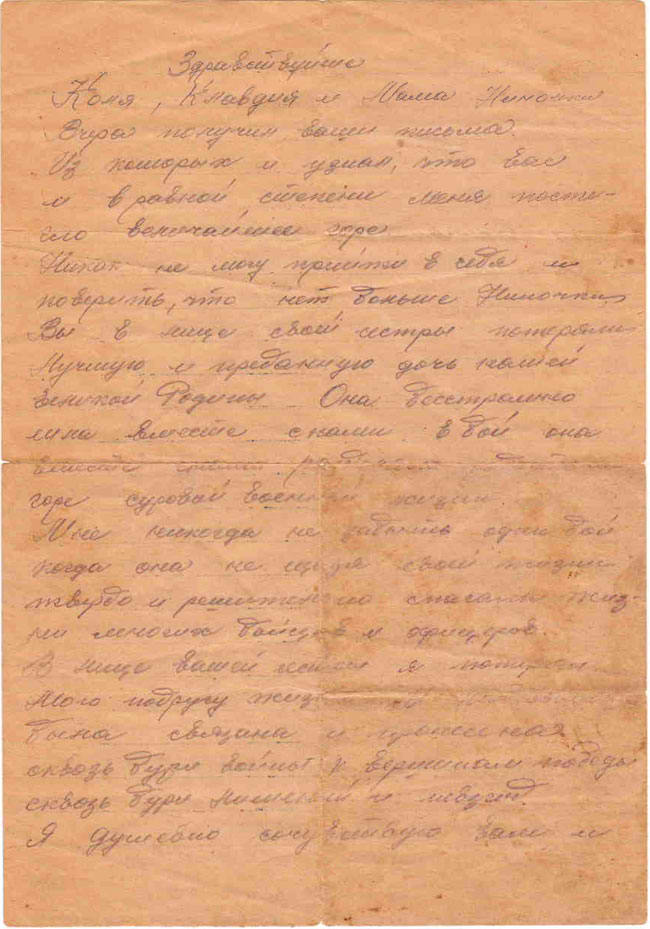 Здравствуйте
Коля, Клавдия и Мама Ниночки
Вчера получил ваши письма.
Из которых я узнал, что вас
и в равной степени меня пости-
гло величайшее горе
Никак не могу прийти в себя и
поверить, что нет больше Ниночки
Вы в лице своей сестры потеряли
лучшую и преданную дочь нашей
великой Родины Она бесстрашно
шла вместе с нами в бой она
вместе с нами
горе суровой военной жизни.
Мне никогда не забыть один бой
когда она не щадя своей жизни
твердо и решительно спасала жиз-
ни многих бойцов и офицеров.
В лице вашей сестры я потерял
Мою подругу жизни
была связана и пронесена
сквозь бури войны к вершинам победы
сквозь бури лишений и невзгод.
Я душевно сочувствую вам и